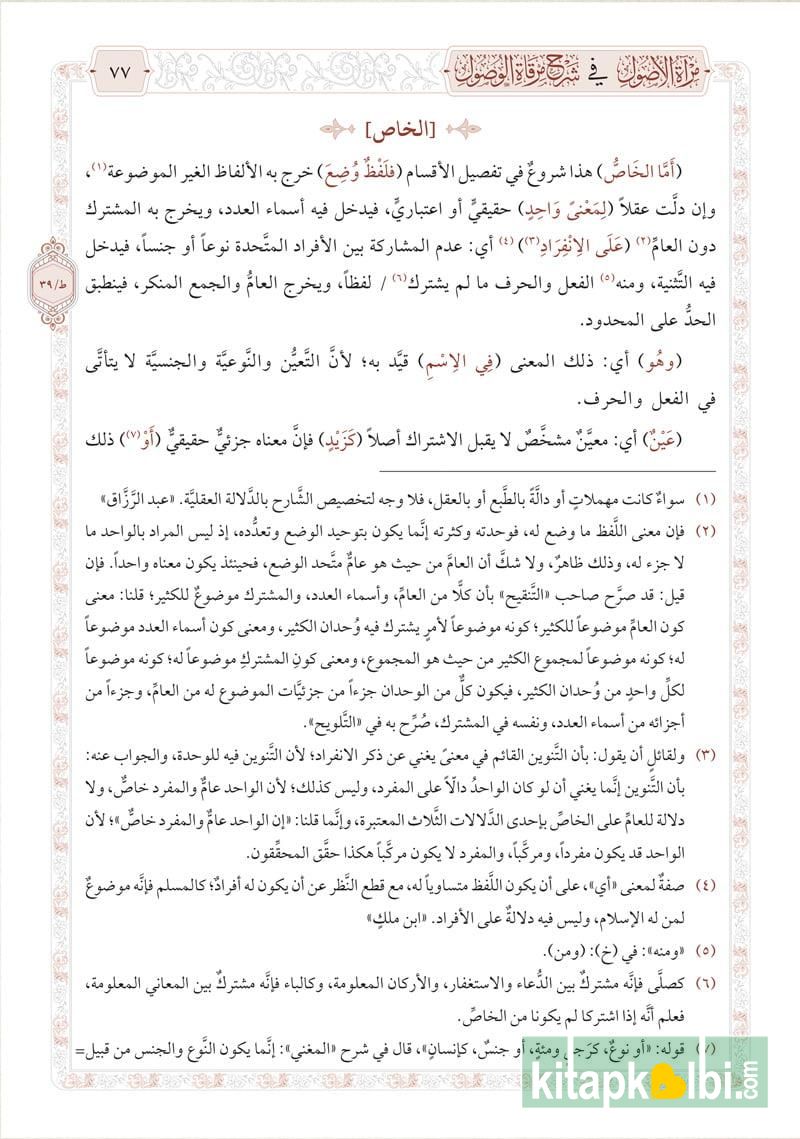 مرآة الأصول في شرح مرقاة الوصول
٧٧
[الخاص]
(أَمَّا الخَاصُّ) هذا شروعٌ في تفصيل الأقسام (فلَفْظٌ وُضِعَ) خرج به الألفاظ الغير الموضوعة(١)،
وإن دلَّت عقلاً (لِمَعْنىً وَاحِدٍ) حقيقيٍّ أو اعتباريٍّ، فيدخل فيه أسماء العدد، ويخرج به المشترك
دون العامِّ(٢) (عَلَى الِانْفِرَادِ(٣)) (٤) أي: عدم المشاركة بين الأفراد المتَّحدة نوعاً أو جنساً، فيدخل
فيه التَّثنية، ومنه(٥) الفعل والحرف ما لم يشترك(٦) / لفظاً، ويخرج العامُّ والجمع المنكر، فينطبق
ط/٣٩
الحدُّ على المحدود.
(وهُو) أي: ذلك المعنى (فِي الِاسْمِ) قيَّد به؛ لأنَّ التَّعيُّن والنَّوعيَّة والجنسيَّة لا يتأتَّى
في الفعل والحرف.
(عَيْنٌ) أي: معيَّنٌ مشخَّصٌ لا يقبل الاشتراك أصلاً (كَزَيْدٍ) فإنَّ معناه جزئيٌّ حقيقيٌّ (أَوْ(٧)) ذلك
(١) سواءٌ كانت مهملاتٍ أو دالَّةً بالطَّبع أو بالعقل، فلا وجه لتخصيص الشَّارح بالدَّلالة العقليَّة. «عبد الرَّزَّاق»
(٢) فإن معنى اللَّفظ ما وضع له، فوحدته وكثرته إنَّما يكون بتوحيد الوضع وتعدُّده، إذ ليس المراد بالواحد ما
لا جزء له، وذلك ظاهرٌ، ولا شكَّ أن العامَّ من حيث هو عامٌّ متَّحد الوضع، فحينئذ يكون معناه واحداً. فإن
قيل: قد صرَّح صاحب «التَّنقيح» بأن كلًّا من العامِّ، وأسماء العدد، والمشترك موضوعٌ للكثير؛ قلنا: معنى
كون العامِّ موضوعاً للكثير؛ كونه موضوعاً لأمرٍ يشترك فيه وُحدان الكثير، ومعنى كون أسماء العدد موضوعاً
له؛ كونه موضوعاً لمجموع الكثير من حيث هو المجموع، ومعنى كونِ المشتركِ موضوعاً له؛ كونه موضوعاً
لكلِّ واحدٍ من وُحدان الكثير، فيكون كلٌّ من الوحدان جزءاً من جزئيَّات الموضوع له من العامِّ، وجزءاً من
أجزائه من أسماء العدد، ونفسه في المشترك، صُرِّح به في «التَّلويح».
(٣) ولقائلٍ أن يقول: بأن التَّنوين القائم في معنىً يغني عن ذكر الانفراد؛ لأن التَّنوين فيه للوحدة، والجواب عنه:
بأن التَّنوين إنَّما يغني أن لو كان الواحدُ دالّاً على المفرد، وليس كذلك؛ لأن الواحد عامٌّ والمفرد خاصٌّ، ولا
دلالة للعامِّ على الخاصِّ بإحدى الدَّلالات الثَّلاث المعتبرة، وإنَّما قلنا: «إن الواحد عامٌّ والمفرد خاصٌّ»؛ لأن
الواحد قد يكون مفرداً، ومركَّباً، والمفرد لا يكون مركَّباً هكذا حقَّق المحقِّقون.
(٤) صفةٌ لمعنى «أي»، على أن يكون اللَّفظ متساوياً له، مع قطع النَّظر عن أن يكون له أفرادٌ؛ كالمسلم فإنَّه موضوعٌ
لمن له الإسلام، وليس فيه دلالةٌ على الأفراد. «ابن ملكٍ»
(٥) «ومنه»: في (خ): (ومن).
(٦) كصلَّى فإنَّه مشتركٌ بين الدُّعاء والاستغفار، والأركان المعلومة، وكالباء فإنَّه مشتركٌ بين المعاني المعلومة،
فعلم أنَّه إذا اشتركا لم يكونا من الخاصِّ.
(٧) قوله: «أو نوعٌ، كرَجلٍ ومئةٍ، أو جنسٌ، كإنسانٍ»، قال في شرح «المغني»: إنَّما يكون النَّوع والجنس من قبيل=
kitapkalbi.com